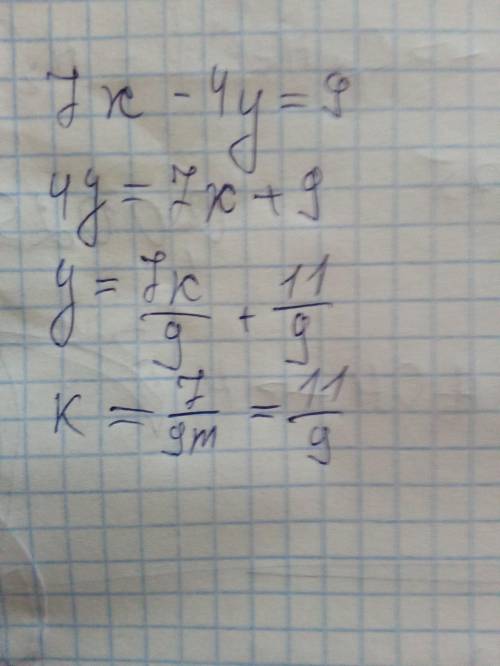 7x - 4y = 9
4y = 7x + 9
y = 7x/9 + 11/9
k = 7/9m = 11/9